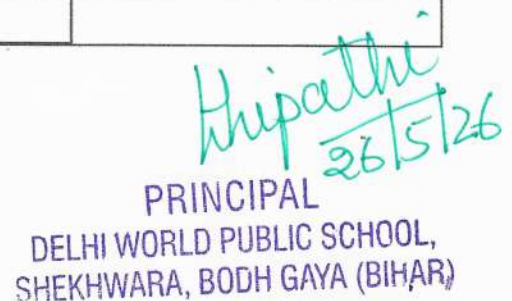 Tripathi
26/5/26
PRINCIPAL
DELHI WORLD PUBLIC SCHOOL,
SHEKHWARA, BODH GAYA (BIHAR)